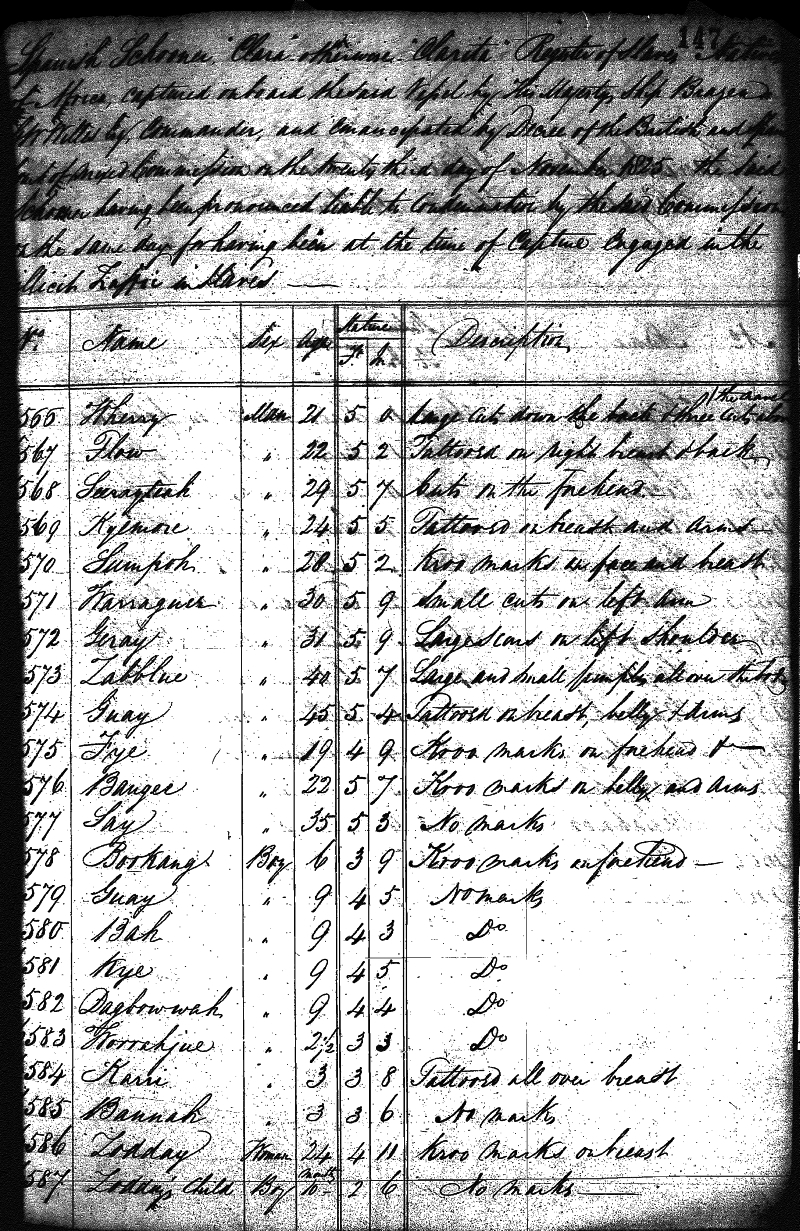 147
Spanish Schooner "Clara" otherwise "Clarita" Register of Slaves Natives
of Africa, captured on board the said Vessel by His Majestys Ship Brazen
Willes Esq. Commander, and emancipated by Decree of the British and
Court of Mixed Commission on the twenty third day of November 1825 the said
Schooner having been pronounced liable to Condemnation by the said Commission
on the same day for having been at the time of Capture Engaged in the
illicit Traffic in Slaves
No. Name Sex Age Stature Description
Ft In
566 Wherry Man 21 5 0 Large cuts down the back & three cuts
567 Flow " 22 5 2 Tattooed on right breast & back
568 " 29 5 7 Cuts on the forehead
569 Kyemore " 24 5 5 Tattooed on breast and arms
570 Sumpoh " 28 5 2 Kroo marks on face and breast
571 Warraguer " 30 5 9 Small cuts on left arm
572 Geray " 31 5 9 Large Scars on left shoulder
573 Zabblue " 40 5 7 Large and small pimples all over the body
574 Guay " 45 5 4 Tattooed on breast, belly & arms
575 Fye " 19 4 9 Kroo marks on forehead &
576 Banger " 22 5 7 Kroo marks on belly and arms
577 Say " 35 5 3 No marks
578 Bookang Boy 6 3 9 Kroo marks on forehead
579 Guay " 9 4 5 No marks
580 Bah " 9 4 3 Do
581 Kye " 9 4 5 Do
582 Dagbowwah " 9 4 4 Do
583 Worrahjue " 2½ 3 3 Do
584 Karri " 3 3 8 Tattooed all over breast
585 Bannah " 3 3 6 No marks
586 Zodday Woman 24 4 11 Kroo marks on breast
587 Zodday's Child Boy months 10 2 6 No marks